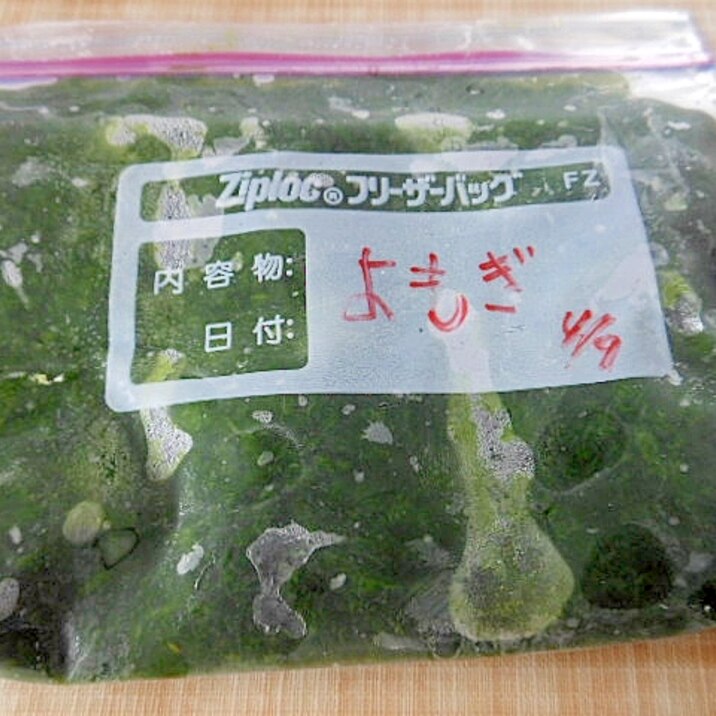 Ziploc®フリーザーバッグ FZ
内容物: よもぎ
日付: 4/9